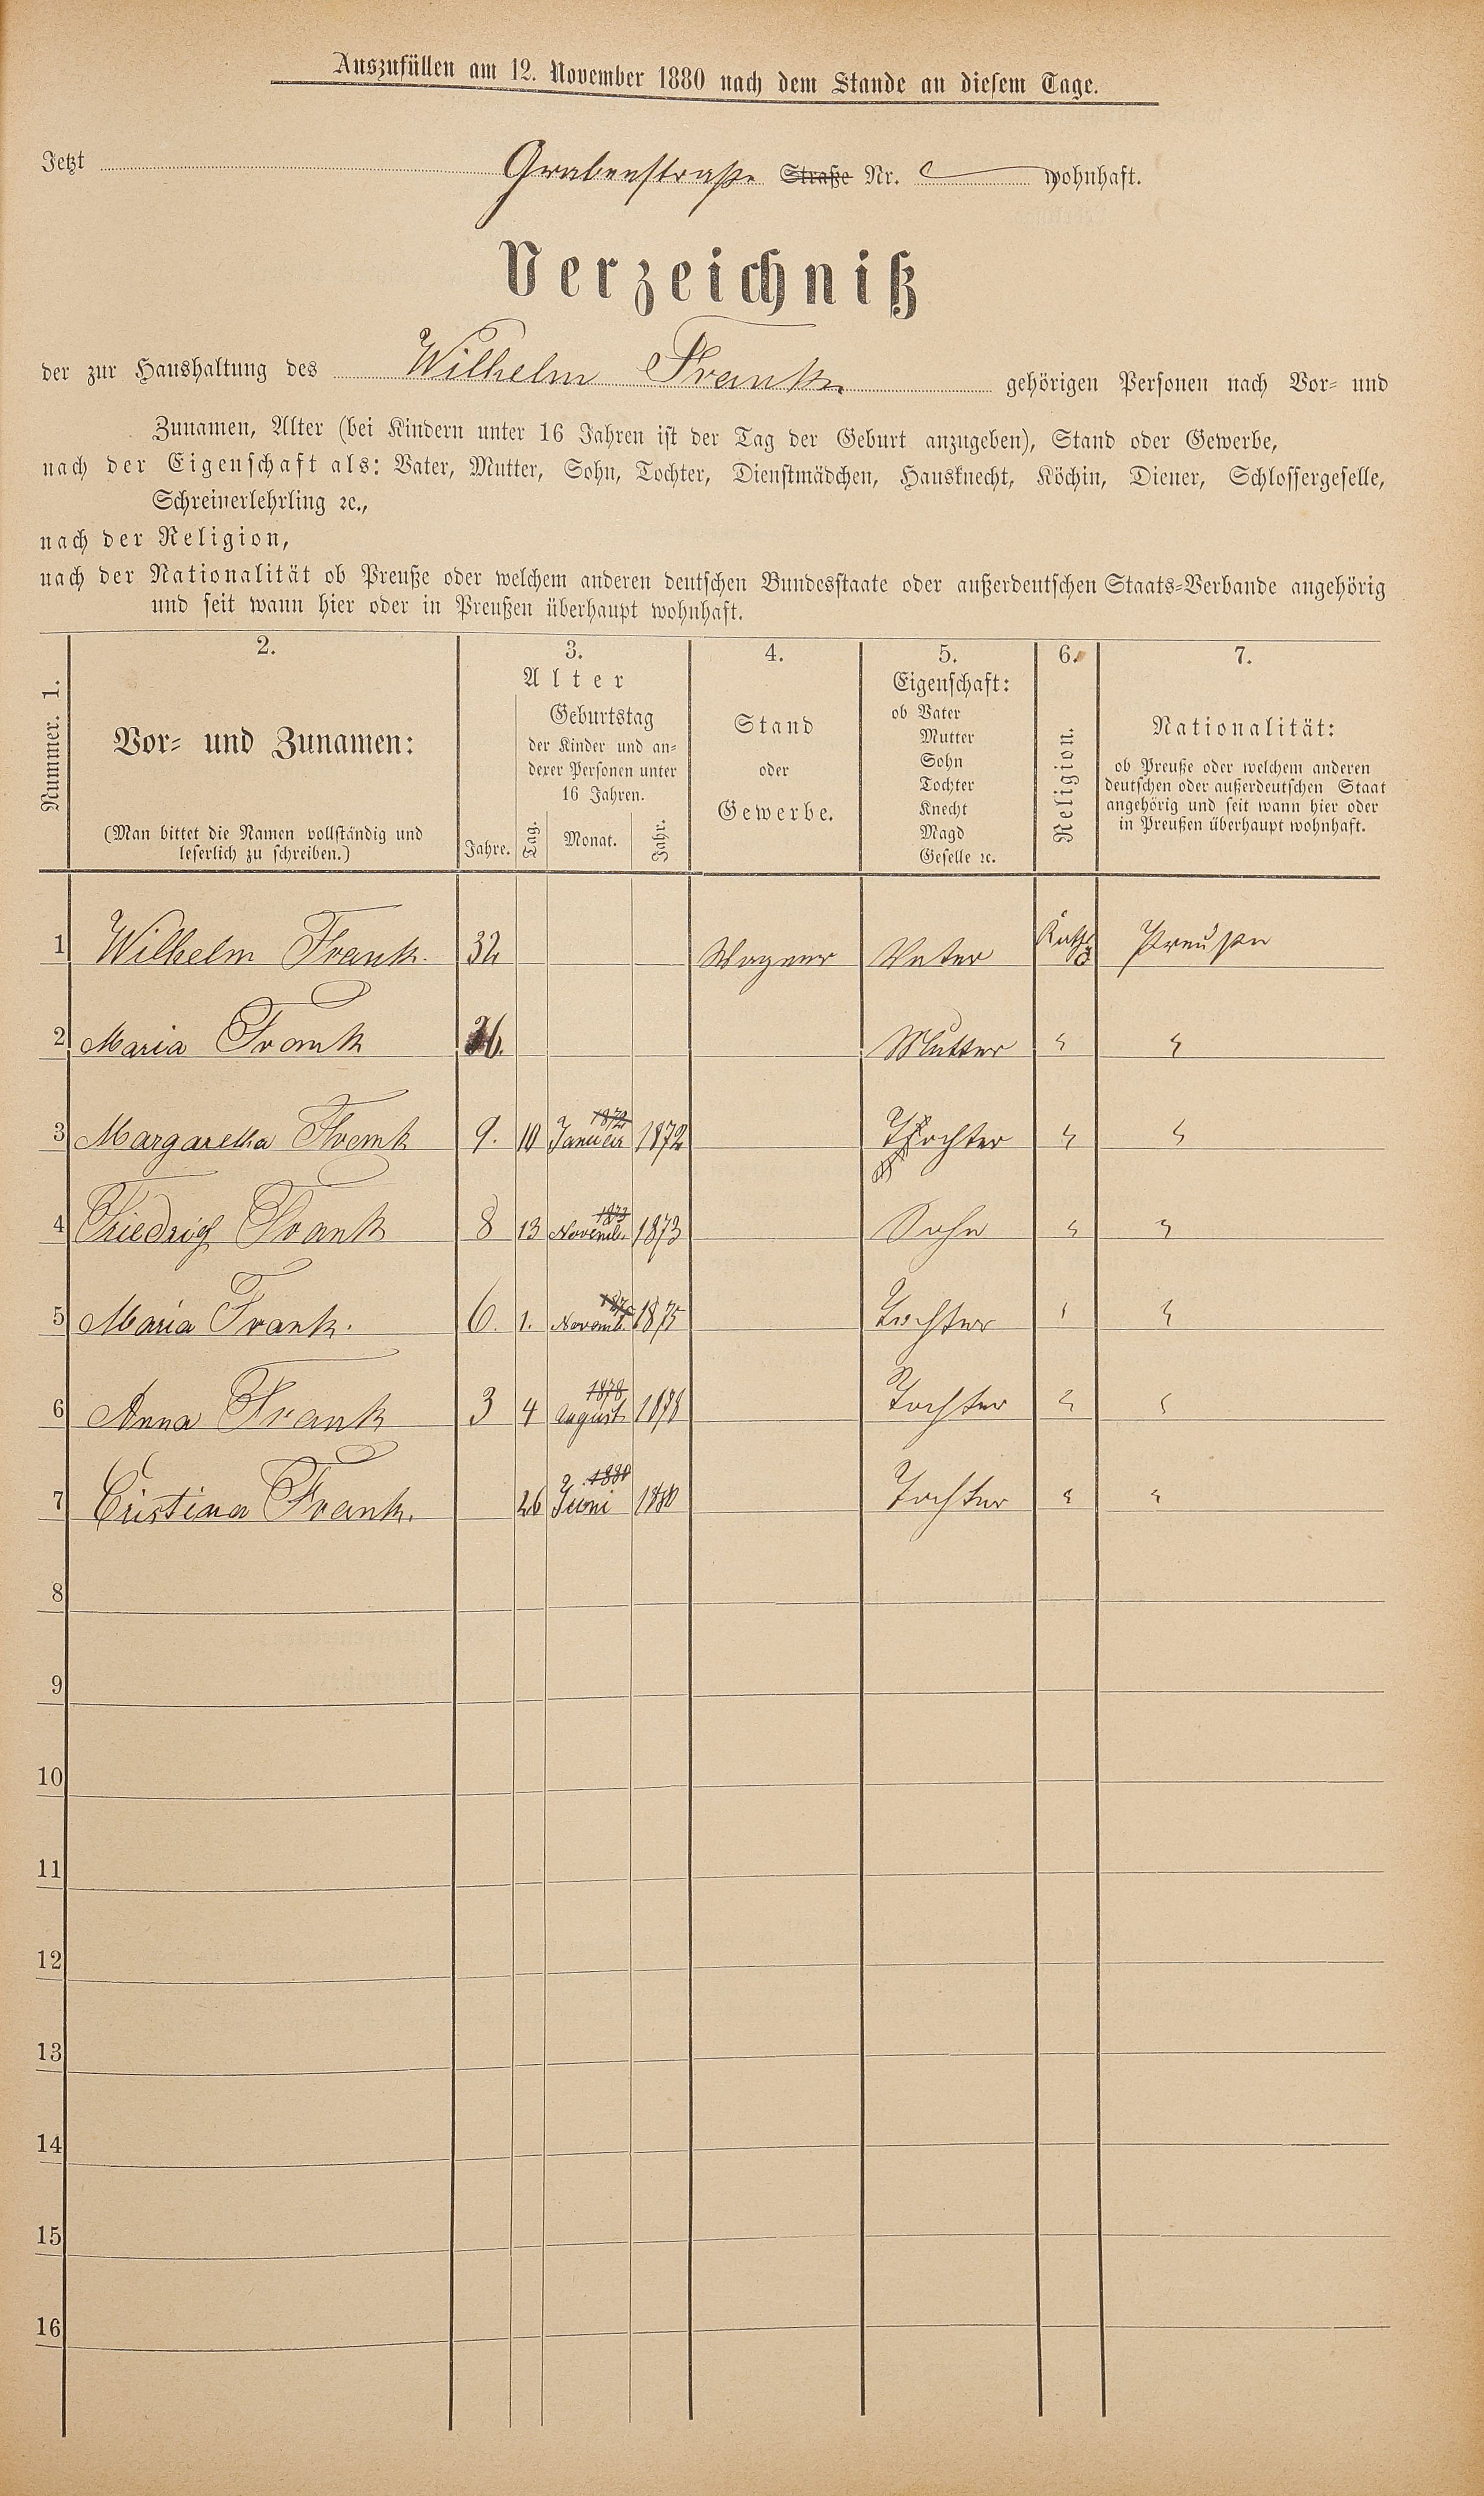 Auszufüllen am 12. November 1880 nach dem Stande an diesem Tage.
Jetzt Grabenstraße Straße Nr. wohnhaft.
Verzeichniß
der zur Haushaltung des Wilhelm Frank gehörigen Personen nach Vor- und
Zunamen, Alter (bei Kindern unter 16 Jahren ist der Tag der Geburt anzugeben), Stand oder Gewerbe,
nach der Eigenschaft als: Vater, Mutter, Sohn, Tochter, Dienstmädchen, Hausknecht, Köchin, Diener, Schlossergeselle,
Schreinerlehrling ꝛc.,
nach der Religion,
nach der Nationalität ob Preuße oder welchem anderen deutschen Bundesstaate oder außerdeutschen Staats-Verbande angehörig
und seit wann hier oder in Preußen überhaupt wohnhaft.
Nummer. 1.
2.
Vor- und Zunamen:
(Man bittet die Namen vollständig und
leserlich zu schreiben.)
3.
Alter
Jahre.
Geburtstag
der Kinder und an-
derer Personen unter
16 Jahren.
Tag. Monat. Jahr.
4.
Stand
oder
Gewerbe.
5.
Eigenschaft:
ob Vater
Mutter
Sohn
Tochter
Knecht
Magd
Geselle ꝛc.
6.
Religion.
7.
Nationalität:
ob Preuße oder welchem anderen
deutschen oder außerdeutschen Staat
angehörig und seit wann hier oder
in Preußen überhaupt wohnhaft.
1 Wilhelm Frank. 32 Wagner Vater Kath Preußen
2 Maria Frank 36. Mutter " "
3 Margaretha Frank 9. 10 Januar 1872 1872 Tochter " "
4 Friedrich Frank 8 13 Novemb. 1873 1873 Sohn " "
5 Maria Frank. 6. 1. Novemb. 1875 1875 Tochter " "
6 Anna Frank 3 4 August 1878 1878 Tochter " "
7 Cristina Frank. 26 Juni 1880 1880 Tochter " "
8
9
10
11
12
13
14
15
16